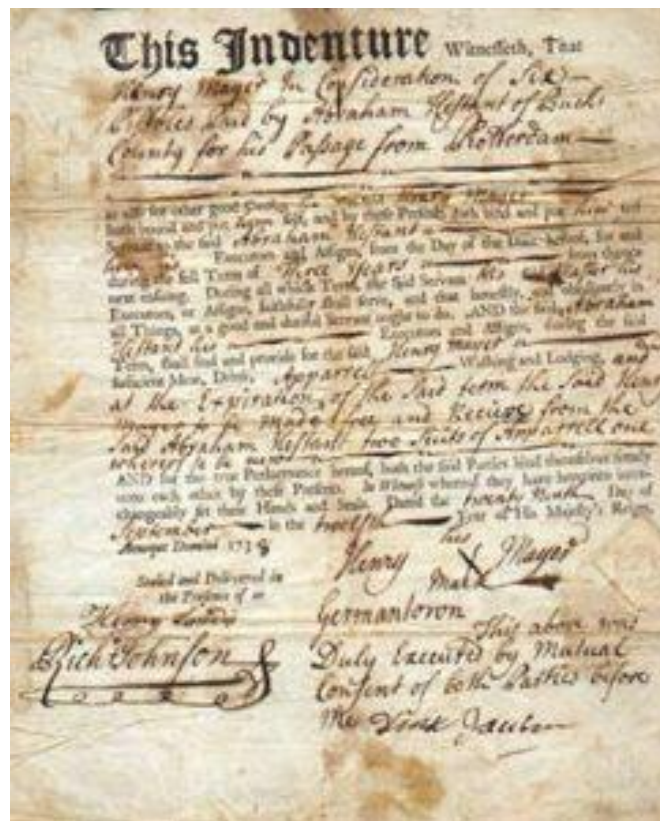 This Indenture Witnesseth, That
Henry Mayer In Consideration of Six
Pistoles Paid by Abraham Hestant of Bucks
County for his Passage from Rotterdam
as also for other good Causes, he the said Henry Mayer
hath bound and put himself, and by these Presents doth bind and put himself
Servant to the said Abraham Hestant
Executors and Assigns, from the Day of the Date hereof, for and
during the full Term of Three Years from thence
next ensuing. During all which Term, the said Servant his said Master his
Executors, or Assigns, faithfully shall serve, and that honestly, and obediently in
all Things, as a good and dutiful Servant ought to do. AND the said Abraham
Hestant his Executors and Assigns, during the said
Term, shall find and provide for the said Henry Mayer
sufficient Meat, Drink, Apparrel Washing and Lodging, and
at the Expiration of the Said term the Said Henry
Mayer to be made free and Receive from the
Said Abraham Hestant two Suits of Apparrell one
whereof to be new
AND for the true Performance hereof, both the said Parties bind themselves firmly
unto each other by these Presents. In Witness whereof they have hereunto inter-
changeably set their Hands and Seals. Dated the twenty Ninth Day of
September in the twelfth Year of His Majesty's Reign,
Annoque Domini 1738
his
Henry X Mayer
Mark
Sealed and Delivered in
the Presence of us
Henry
Rich Johnson
Germantown
This above was
Duly Executed by Mutual
Consent of both Parties before
Me